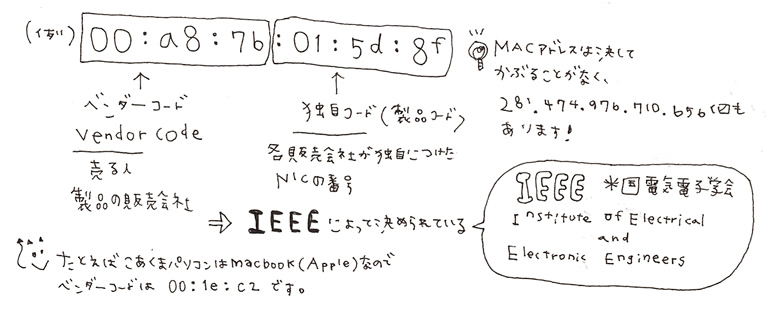 (れい) 00:a8:7b:01:5d:8f
MACアドレスは決して
かぶることがなく、
281.474.976.710.656個も
あります!
ベンダーコード
Vendor code
売る人
製品の販売会社
独自コード(製品コード)
各販売会社が独自につけた
NICの番号
⇒ IEEEによって決められている
IEEE 米国電気電子学会
Institute of Electrical
and
Electronic Engineers
たとえばこあくまパソコンはmacbook(Apple)なので
ベンダーコードは 00:1e:c2 です。